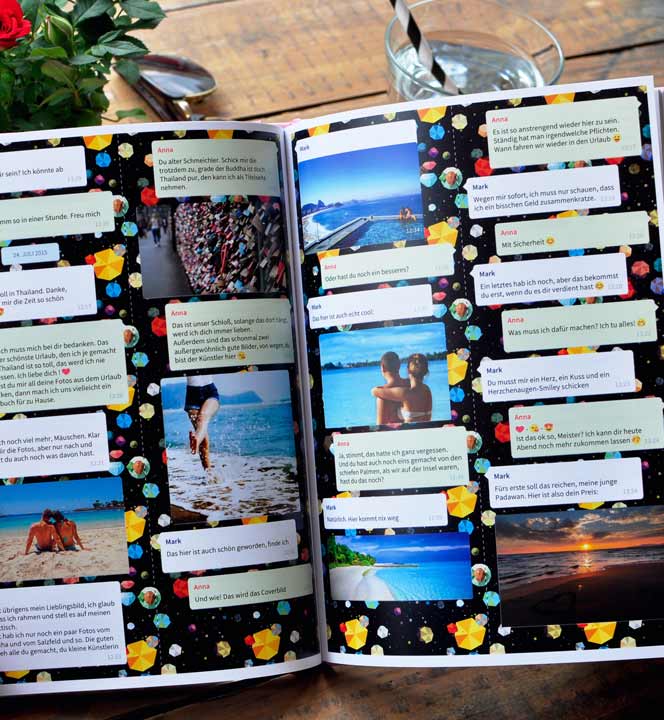 sein? Ich könnte ab
13:29
mm so in einer Stunde. Freu mich
24. JULI 2015
oll in Thailand. Danke,
mir die Zeit so schön
ch muss mich bei dir bedanken. Das
er schönste Urlaub, den ich je gemacht
Thailand ist so toll, das werd ich nie
essen. Ich liebe dich!❤️
st du mir all deine Fotos aus dem Urlaub
ken, dann mach ich uns vielleicht ein
buch für zu Hause.
och noch viel mehr, Mäuschen. Klar
dir die Fotos, aber nur nach und
t du auch noch was davon hast.
übrigens mein Lieblingsbild, ich glaub
ss ich rahmen und stell es auf meinen
tisch.
t hab ich nur noch ein paar Fotos vom
ha und vom Salzfeld und so. Die guten
eh alle du gemacht, du kleine Künstlerin
Anna
Du alter Schmeichler. Schick mir die
trotzdem zu, grade der Buddha ist doch
Thailand pur, den kann ich als Titelseite
nehmen.
Anna
Das ist unser Schloß, solange das dort hängt,
werd ich dich immer lieben.
Außerdem sind das schonmal zwei
außergewöhnlich gute Bilder, von wegen, du
bist der Künstler hier 😘
Mark
Das hier ist auch schön geworden, finde ich
Anna
Und wie! Das wird das Coverbild
Mark
12:14
Anna
Oder hast du noch ein besseres?
Mark
Das hier ist auch echt cool:
Anna
Ja, stimmt, das hatte ich ganz vergessen.
Und du hast auch noch eins gemacht von den
schiefen Palmen, als wir auf der Insel waren,
hast du das noch?
Mark
Natürlich. Hier kommt nix weg
Anna
Es ist so anstrengend wieder hier zu sein.
Ständig hat man irgendwelche Pflichten.
Wann fahren wir wieder in den Urlaub 😅
Mark
Wegen mir sofort, ich muss nur schauen, dass
ich ein bisschen Geld zusammenkratze.
Anna
Mit Sicherheit 😊
Mark
Ein letztes hab ich noch, aber das bekommst
du erst, wenn du es dir verdient hast 😊
Anna
Was muss ich dafür machen? Ich tu alles! 😁
Mark
Du musst mir ein Herz, ein Kuss und ein
Herzchenaugen-Smiley schicken
Anna
❤️ - 😘 - 😍
Ist das ok so, Meister? Ich kann dir heute
Abend noch mehr zukommen lassen
Mark
Fürs erste soll das reichen, meine junge
Padawan. Hier ist also dein Preis: